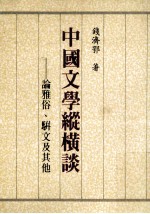 錢濟鄂 著
中國文學縱橫談
──論雅俗、駢文及其他